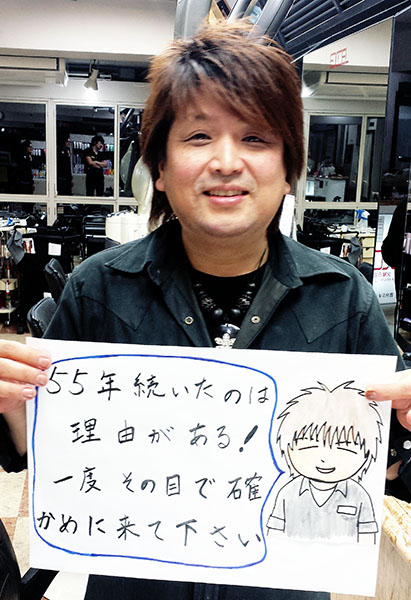 55年続いたのは
理由がある!
一度その目で確
かめに来て下さい